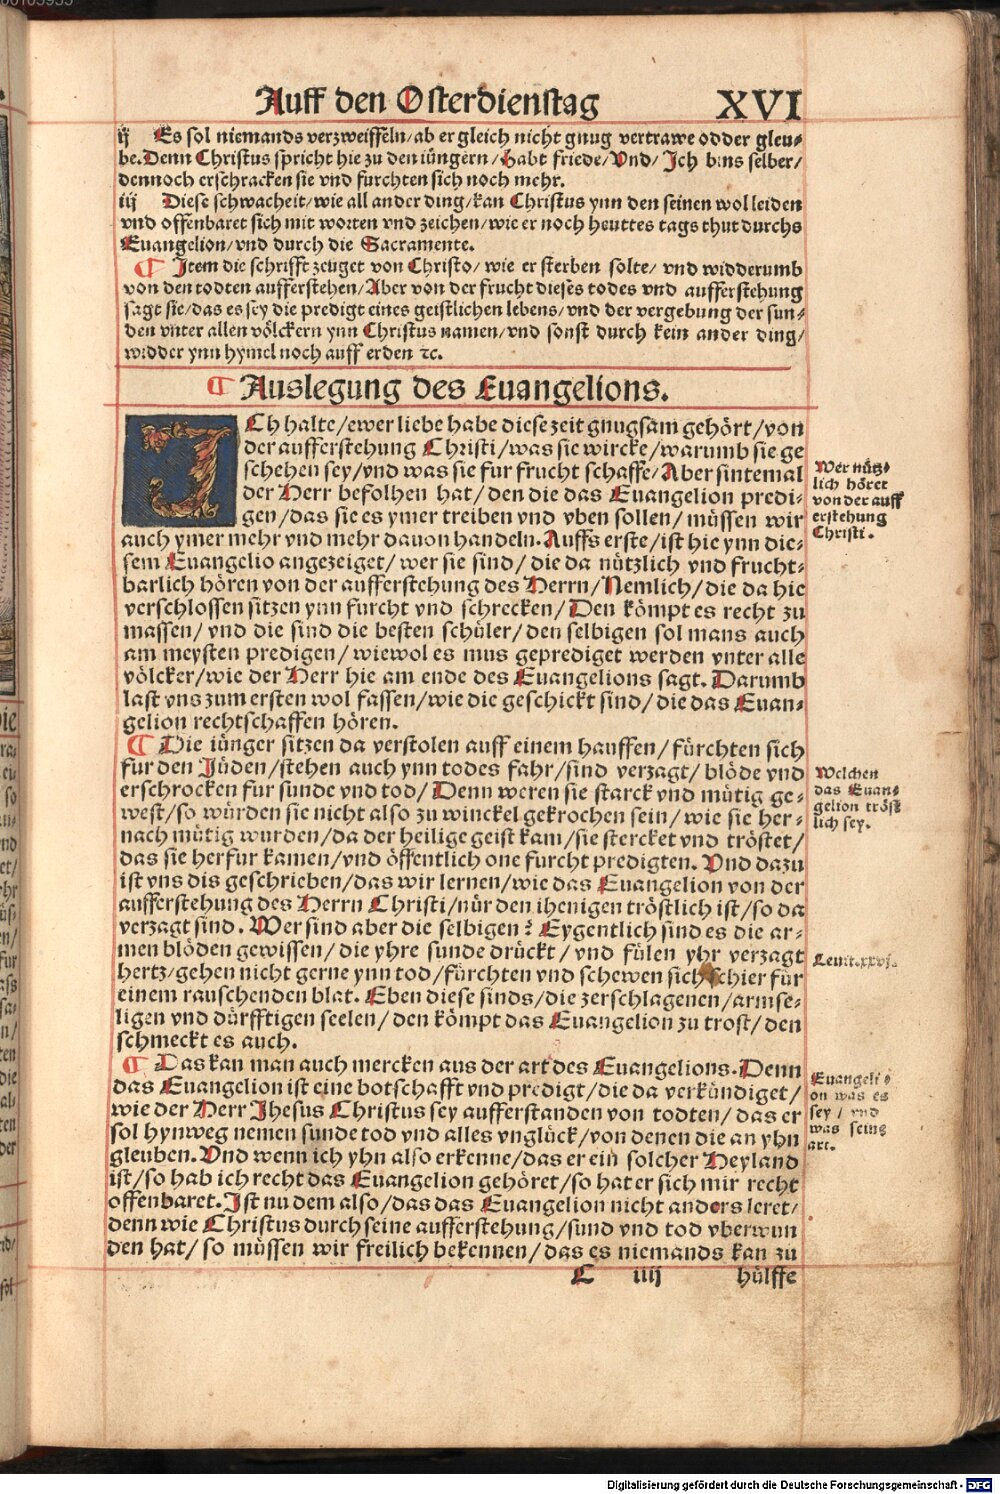 Auff den Osterdienstag XVI
ij Es sol niemands verzweiffeln/ab er gleich nicht gnug vertrawe odder gleu-
be.Denn Christus spricht hie zu den iüngern/Habt friede/Vnd/Ich bins selber/
dennoch erschracken sie vnd furchten sich noch mehr.
iij Diese schwacheit/wie all ander ding/kan Christus ynn den seinen wol leiden
vnd offenbaret sich mit worten vnd zeichen/wie er noch heuttes tags thut durchs
Euangelion/vnd durch die Sacramente.
¶ Item die schrifft zeuget von Christo/wie er sterben solte/vnd widderumb
von den todten aufferstehen/Aber von der frucht dieses todes vnd aufferstehung
sagt sie/das es sey die predigt eines geistlichen lebens/vnd der vergebung der sun-
den vnter allen völckern ynn Christus namen/vnd sonst durch kein ander ding/
widder ynn hymel noch auff erden ꝛc.
¶ Auslegung des Euangelions.
ICh halte/ewer liebe habe diese zeit gnugsam gehört/von
der aufferstehung Christi/was sie wircke/warumb sie ge
schehen sey/vnd was sie fur frucht schaffe/Aber sintemal
der Herr befolhen hat/den die das Euangelion predi-
gen/das sie es ymer treiben vnd vben sollen/müssen wir
auch ymer mehr vnd mehr dauon handeln.Auffs erste/ist hie ynn die-
sem Euangelio angezeiget/wer sie sind/die da nützlich vnd frucht-
barlich hören von der aufferstehung des Herrn/Nemlich/die da hie
verschlossen sitzen ynn furcht vnd schrecken/Den kömpt es recht zu
massen/vnd die sind die besten schüler/den selbigen sol mans auch
am meysten predigen/wiewol es mus geprediget werden vnter alle
völcker/wie der Herr hie am ende des Euangelions sagt.Darumb
last vns zum ersten wol fassen/wie die geschickt sind/die das Euan-
gelion rechtschaffen hören.
Wer nütz-
lich höret
von der auff
erstehung
Christi.
¶ Die iünger sitzen da verstolen auff einem hauffen/fürchten sich
fur den Jüden/stehen auch ynn todes fahr/sind verzagt/blöde vnd
erschrocken fur sunde vnd tod/Denn weren sie starck vnd mütig ge-
west/so würden sie nicht also zu winckel gekrochen sein/wie sie her-
nach mütig wurden/da der heilige geist kam/sie stercket vnd tröstet/
das sie herfur kamen/vnd öffentlich one furcht predigten.Vnd dazu
ist vns dis geschrieben/das wir lernen/wie das Euangelion von der
aufferstehung des Herrn Christi/nür den ihenigen tröstlich ist/so da
verzagt sind.Wer sind aber die selbigen? Eygentlich sind es die ar-
men blöden gewissen/die yhre sunde drückt/vnd fülen yhr verzagt
hertz/gehen nicht gerne ynn tod/fürchten vnd schewen sich schier für
einem rauschenden blat.Eben diese sinds/die zerschlagenen/armse-
ligen vnd dürfftigen seelen/den kömpt das Euangelion zu trost/den
schmeckt es auch.
Welchen
das Euan-
gelion tröst
lich sey.
Leuit.xxvj.
¶ Das kan man auch mercken aus der art des Euangelions.Denn
das Euangelion ist eine botschafft vnd predigt/die da verkündiget/
wie der Herr Jhesus Christus sey aufferstanden von todten/das er
sol hynweg nemen sunde tod vnd alles vnglück/von denen die an yhn
gleuben.Vnd wenn ich yhn also erkenne/das er ein solcher Heyland
ist/so hab ich recht das Euangelion gehöret/so hat er sich mir recht
offenbaret.Ist nu dem also/das das Euangelion nicht anders leret/
denn wie Christus durch seine aufferstehung/sund vnd tod vberwun
den hat/so müssen wir freilich bekennen/das es niemands kan zu
Euangeli-
on was es
sey/vnd
was seine
art.
C iiij hülffe
Digitalisierung gefördert durch die Deutsche Forschungsgemeinschaft - DFG